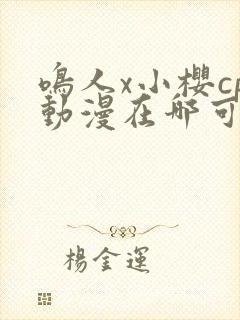 鳴人x小櫻cp
動漫在哪可
楊金運